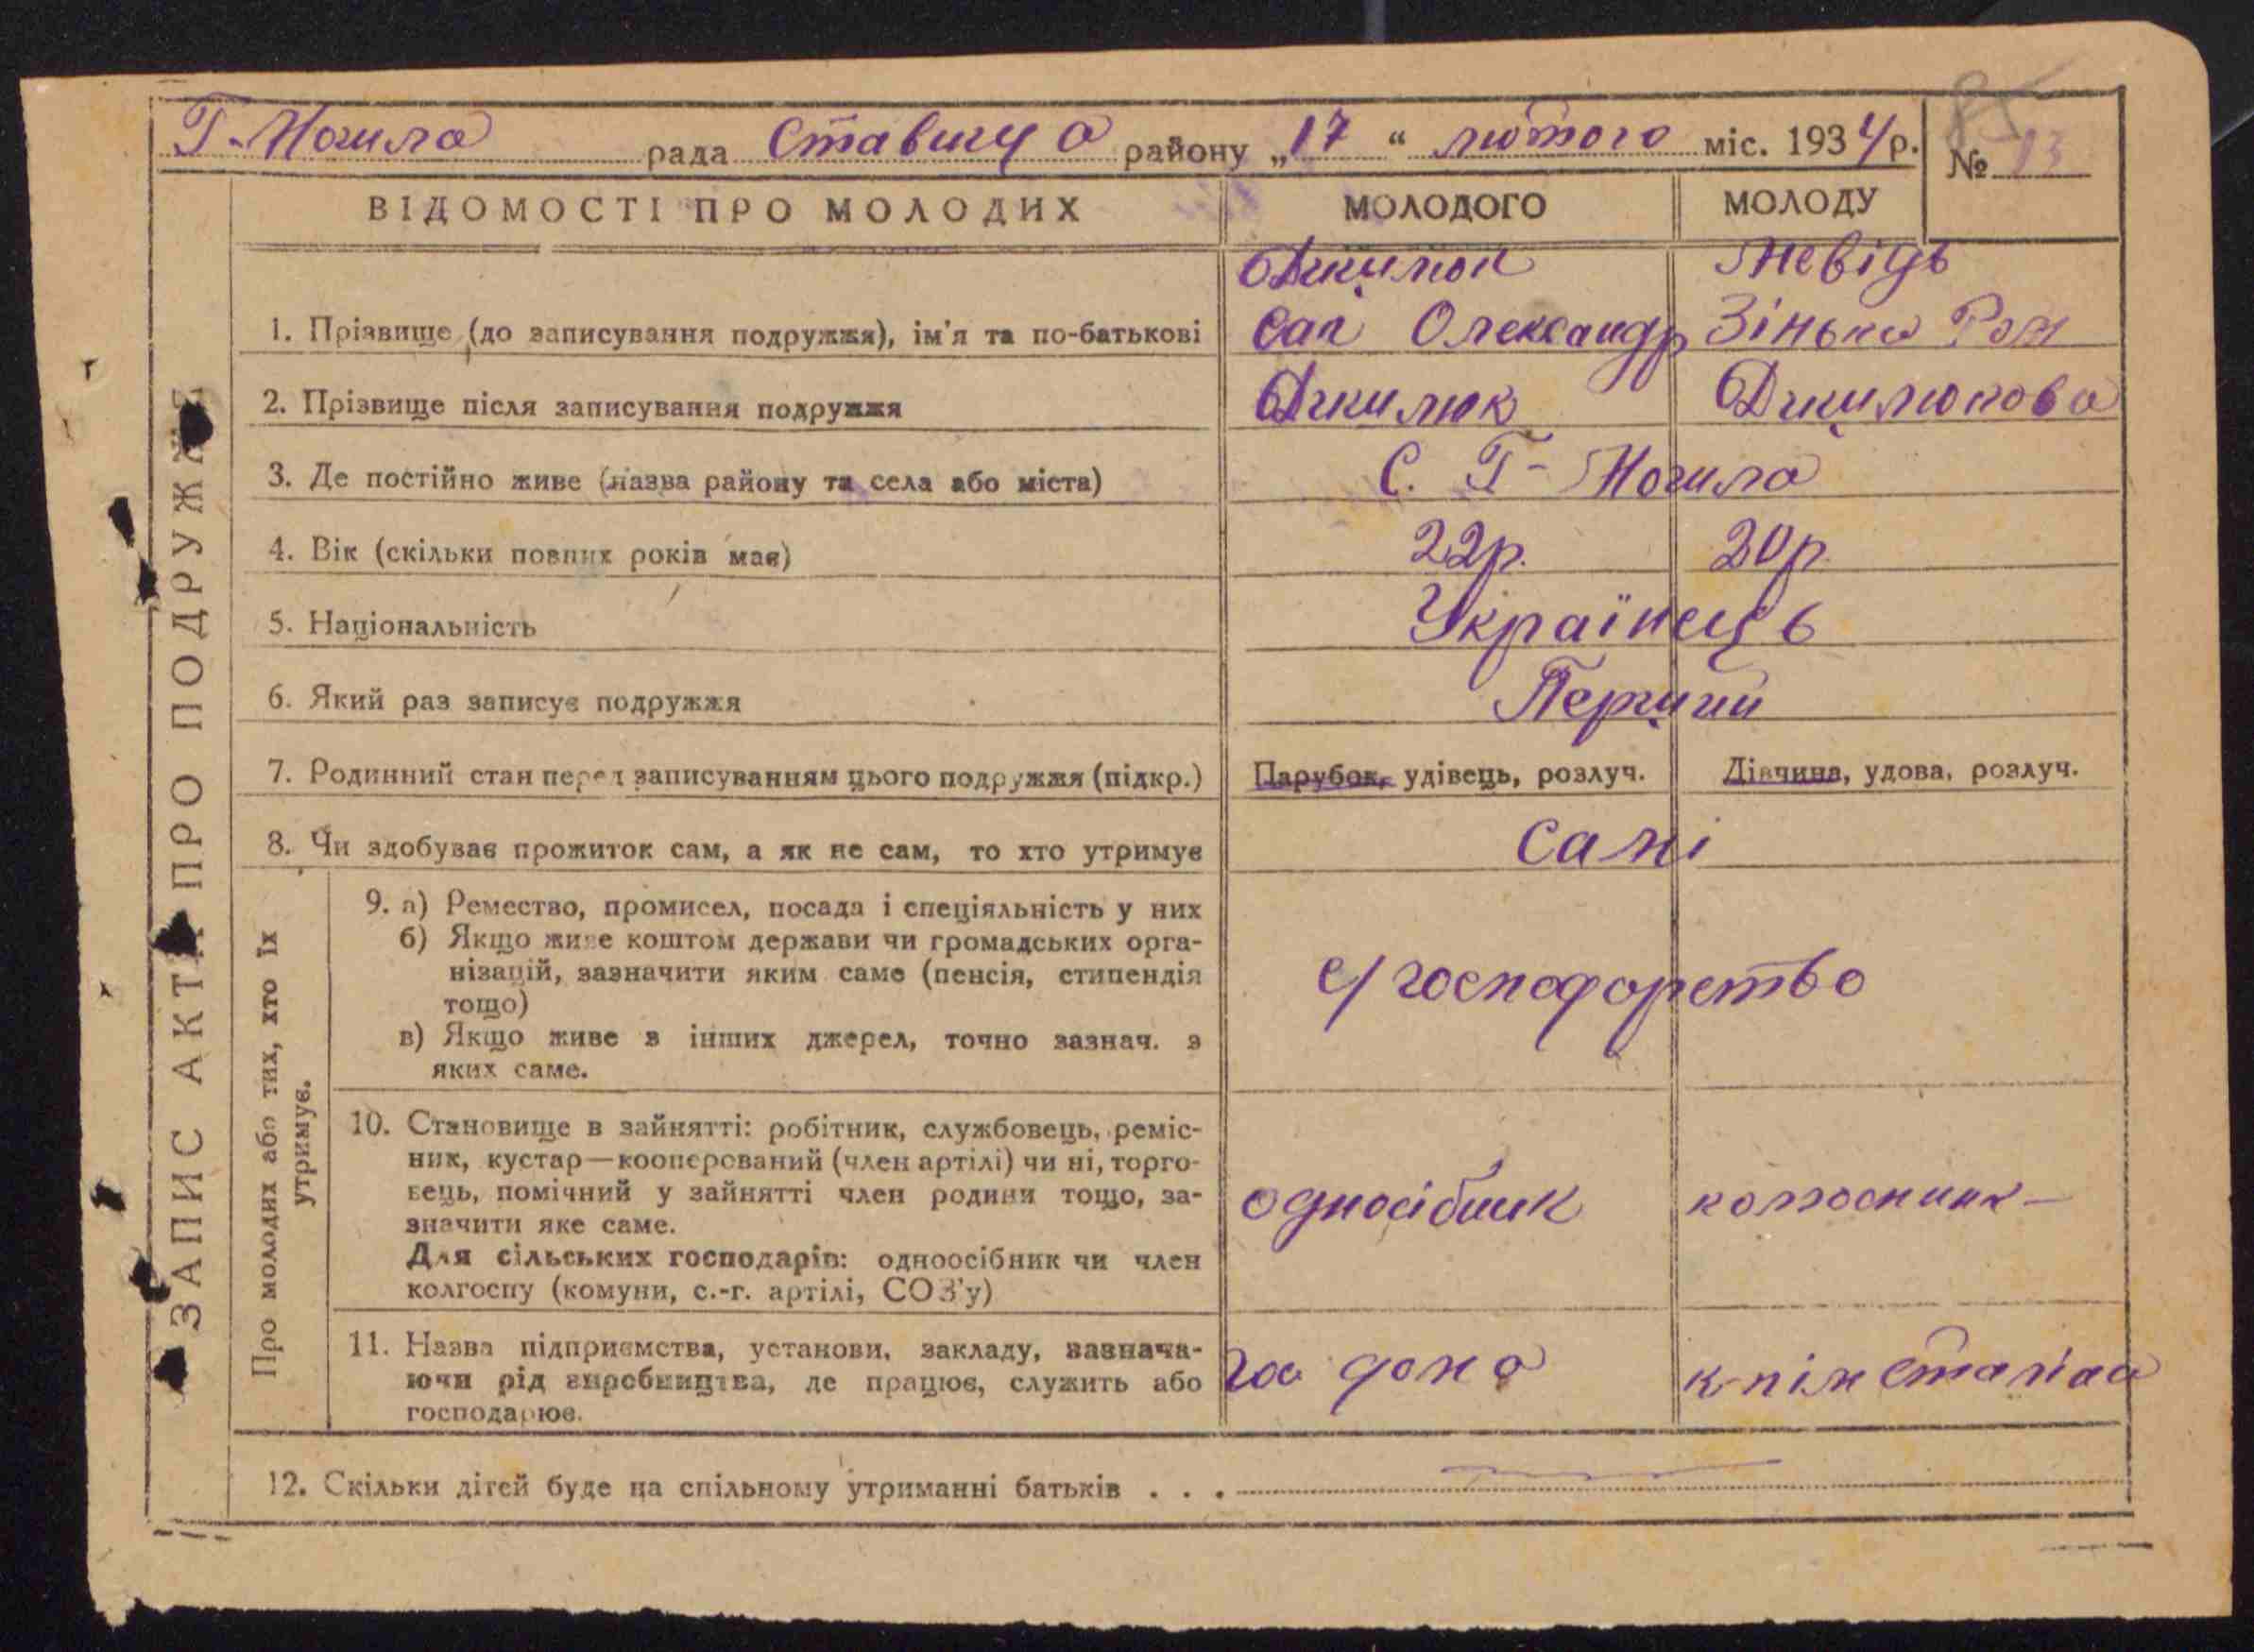 Г-Могила рада Ставищ а району „17“ лютого міс. 1934 р.
№ 13
ВІДОМОСТІ ПРО МОЛОДИХ МОЛОДОГО МОЛОДУ
Невідь
1. Прізвище (до записування подружжя), ім'я та по-батькові Сап Олександр Зінька Ром
2. Прізвище після записування подружжя Джилюк Джилюкова
3. Де постійно живе (назва району та села або міста) С. Г-Могила
4. Вік (скільки повних років має) 22р. 20р.
5. Національність Українець
6. Який раз записує подружжя Перший
7. Родинний стан перед записуванням цього подружжя (підкр.) Парубок, удівець, розлуч. Дівчина, удова, розлуч.
8. Чи здобуває прожиток сам, а як не сам, то хто утримує Самі
ЗАПИС АКТА ПРО ПОДРУЖЖЯ
Про молодих або тих, хто їх
утримує.
9. а) Ремество, промисел, посада і спеціяльність у них
б) Якщо живе коштом держави чи громадських орга-
нізацій, зазначити яким саме (пенсія, стипендія
тощо)
с/господорство
в) Якщо живе з інших джерел, точно зазнач. з
яких саме.
10. Становище в зайнятті: робітник, службовець, реміс-
ник, кустар—кооперований (член артілі) чи ні, торго-
вець, помічний у зайнятті член родини тощо, за-
значити яке саме.
односібник колгосник
Для сільських господарів: одноосібник чи член
колгоспу (комуни, с.-г. артілі, СОЗ'у)
11. Назва підприємства, установи, закладу, зазнача-
ючи рід виробництва, де працює, служить або
господарює.
дома
12. Скільки дітей буде на спільному утриманні батьків . . .